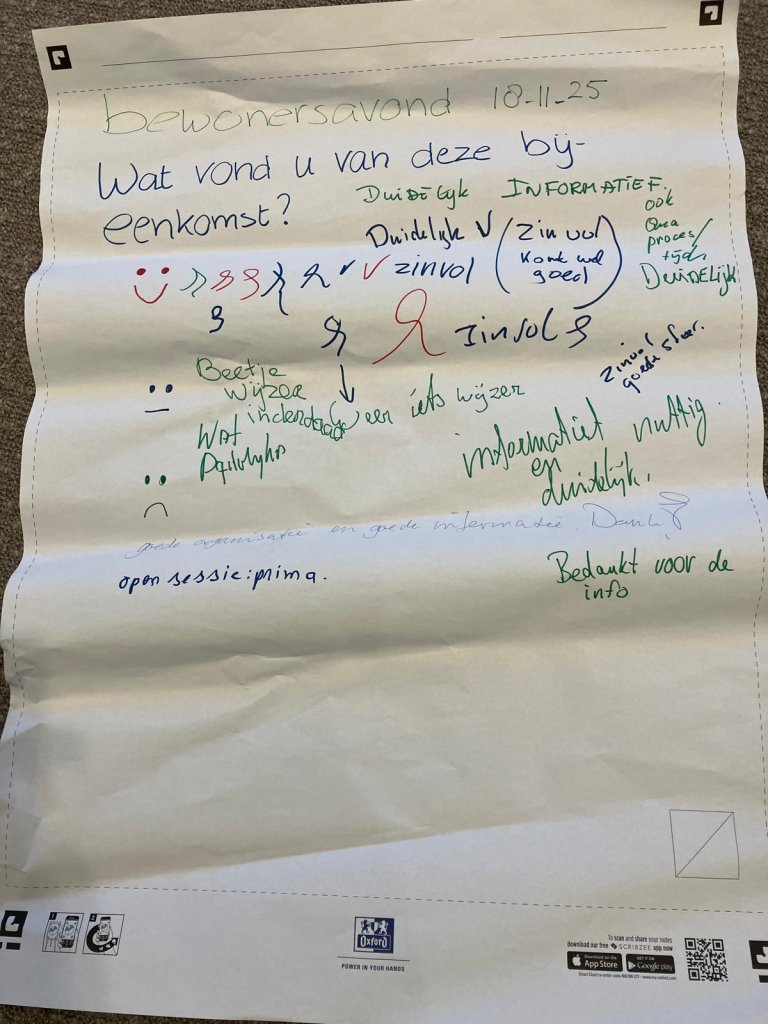 bewonersavond 18-11-25
Wat vond u van deze bij-
eenkomst?
Duidelijk INFORMATIEF.
ook
Qua
proces/
tijd,
DUIDELIJK
Duidelijk V (Zinvol
Komt wel
goed)
zinvol
Zinvol
zinvol
goede sfeer.
Beetje
wijzer
inderdaad
Wat
weer iets wijzer
informatief nuttig.
en
duidelijk.
goede organisatie en goede informatie. Dank!
open sessie: prima.
Bedankt voor de
info
1 2
Oxford
POWER IN YOUR HANDS
To scan and share your notes
download our free SCRIBZEE app now
Download on the
App Store
GET IT ON
Google play